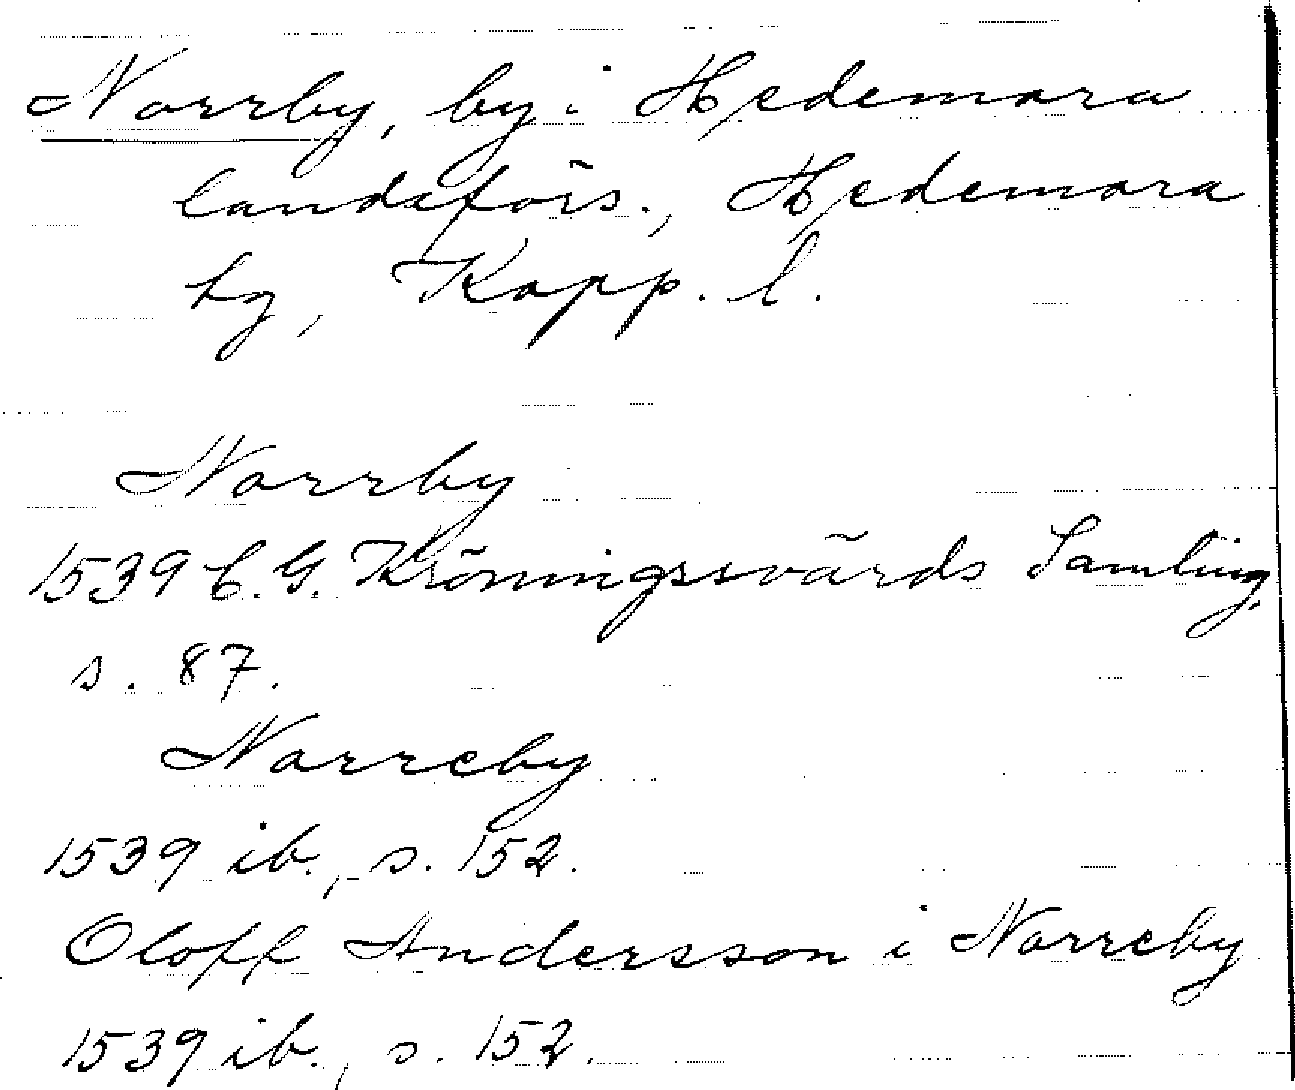 Norrby, by i Hedemora
landsförs., Hedemora
tg, Kopp. l.
Norrby
1539 C. G. Kröningssvärds Samling,
s. 87.
Norreby
1539 ib., s. 152.
Oloff Andersson i Norreby
1539 ib., s. 152.